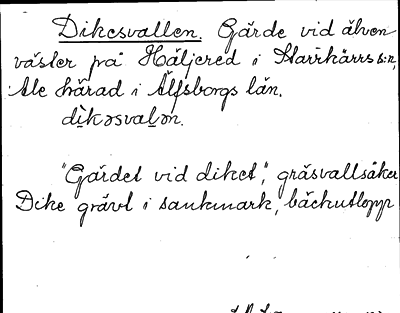 Dikesvallen. Gärde vid älven
väster på Häljered i Starrkärrs s:n,
Ale härad i Älfsborgs län.
dìkəsvaḷən.
"Gärdet vid diket", gräsvallsåker
Dike grävt i sankmark, bäckutlopp